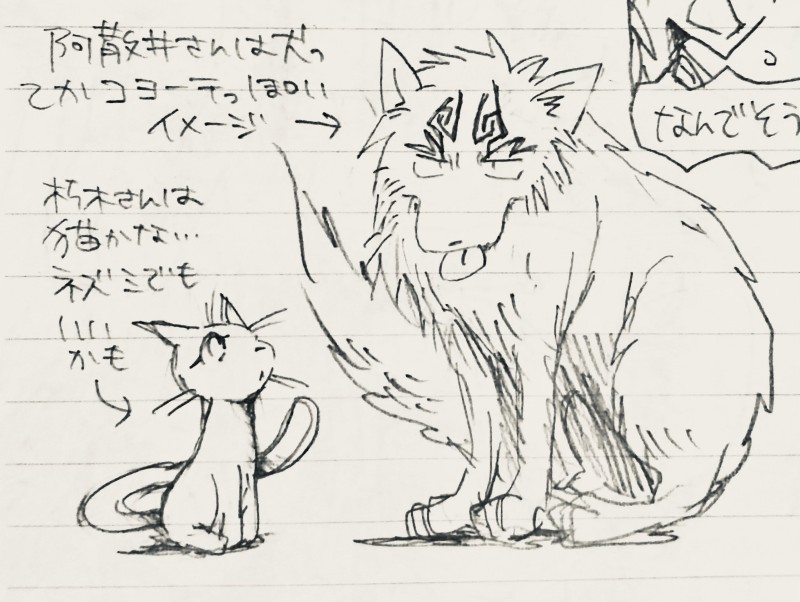 阿散井さんは犬っ
てかコヨーテっぽい
イメージ →
朽木さんは
猫かな…
ネズミでも
いい
かも
なんでそう